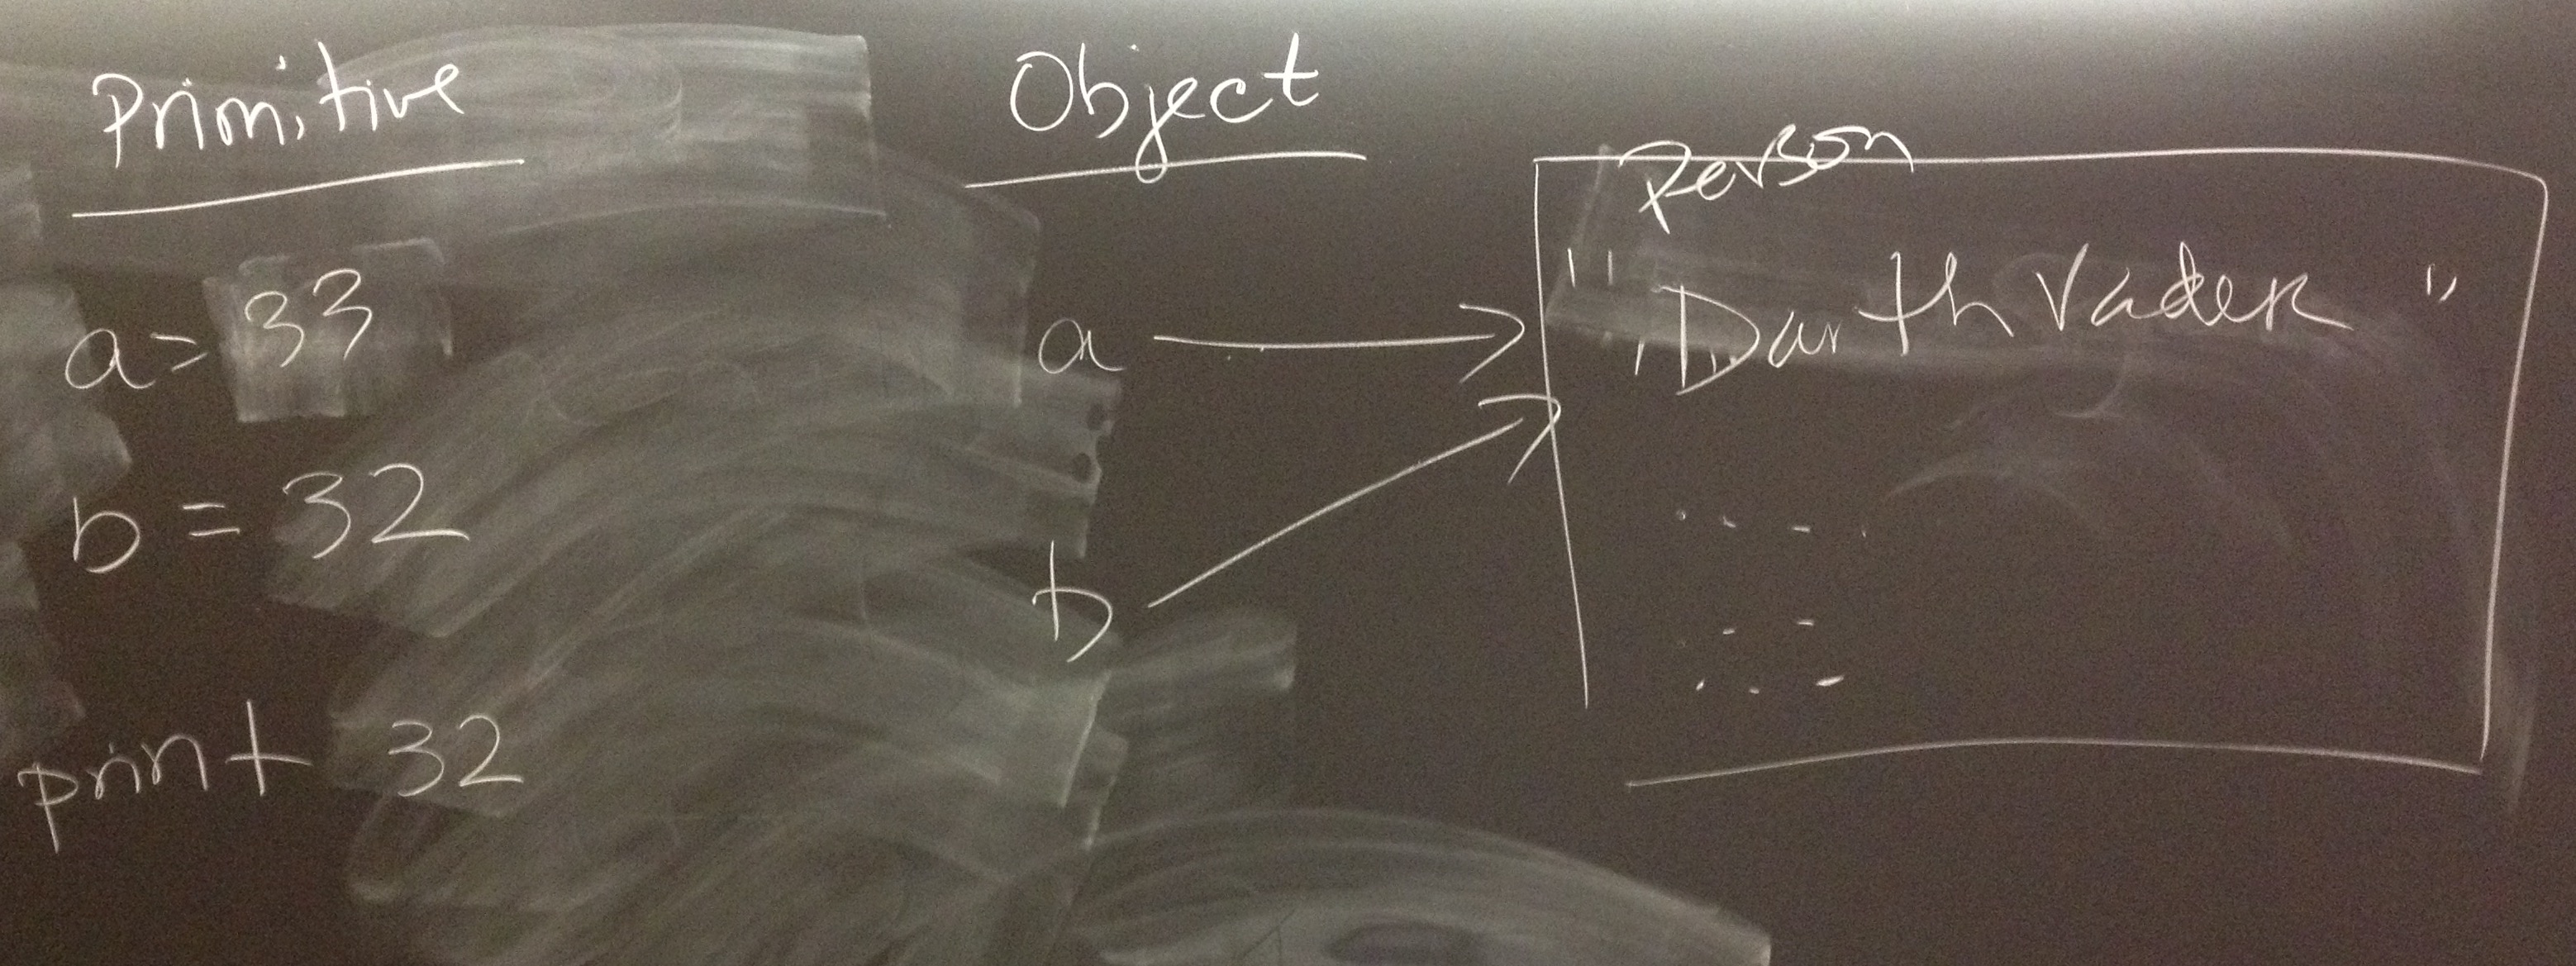 Primitive
a = 33
b = 32
print 32
Object
a
b
Person
"Darth Vader"